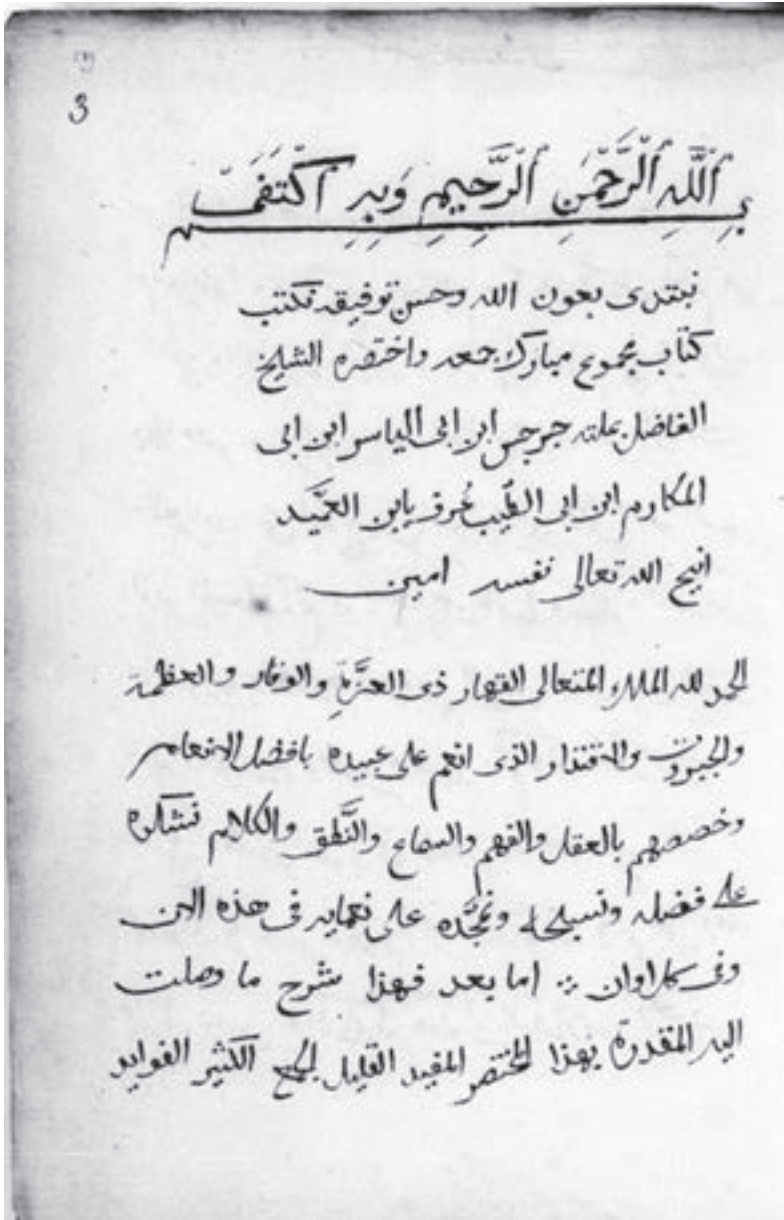 3
بِٱللَّهِ ٱلرَّحْمَنِ ٱلرَّحِيمِ وَبِهِ
نبتدى بعون الله وحسن توفيقه نكتب
كتاب مجموع مبارك جمعه واختصره الشيخ
الفاضل بملته جرجس ابن ابى الياسر ابن ابى
المكارم ابن ابى الطيّب عُرف بابن العمَّيد
انيح الله تعالى نفسه امين
الحمد لله الملك المتعالى القهار ذى العزَّةِ والوقار والعظمة
والجبروت والاقتدار الذى انعم على عبيده بافضل الانعام
وخصصهم بالعقل والفهم والسماع والنَّطق والكلام نشكره
على فضله ونسبحه ونمجَّده على نعمايه فى هذه
وفى كل اوان ∴ اما بعد فهذا شرح ما وصلت
اليه المقدرة بهذا المختصر المفيد القليل الجمع الكثير الفوايد